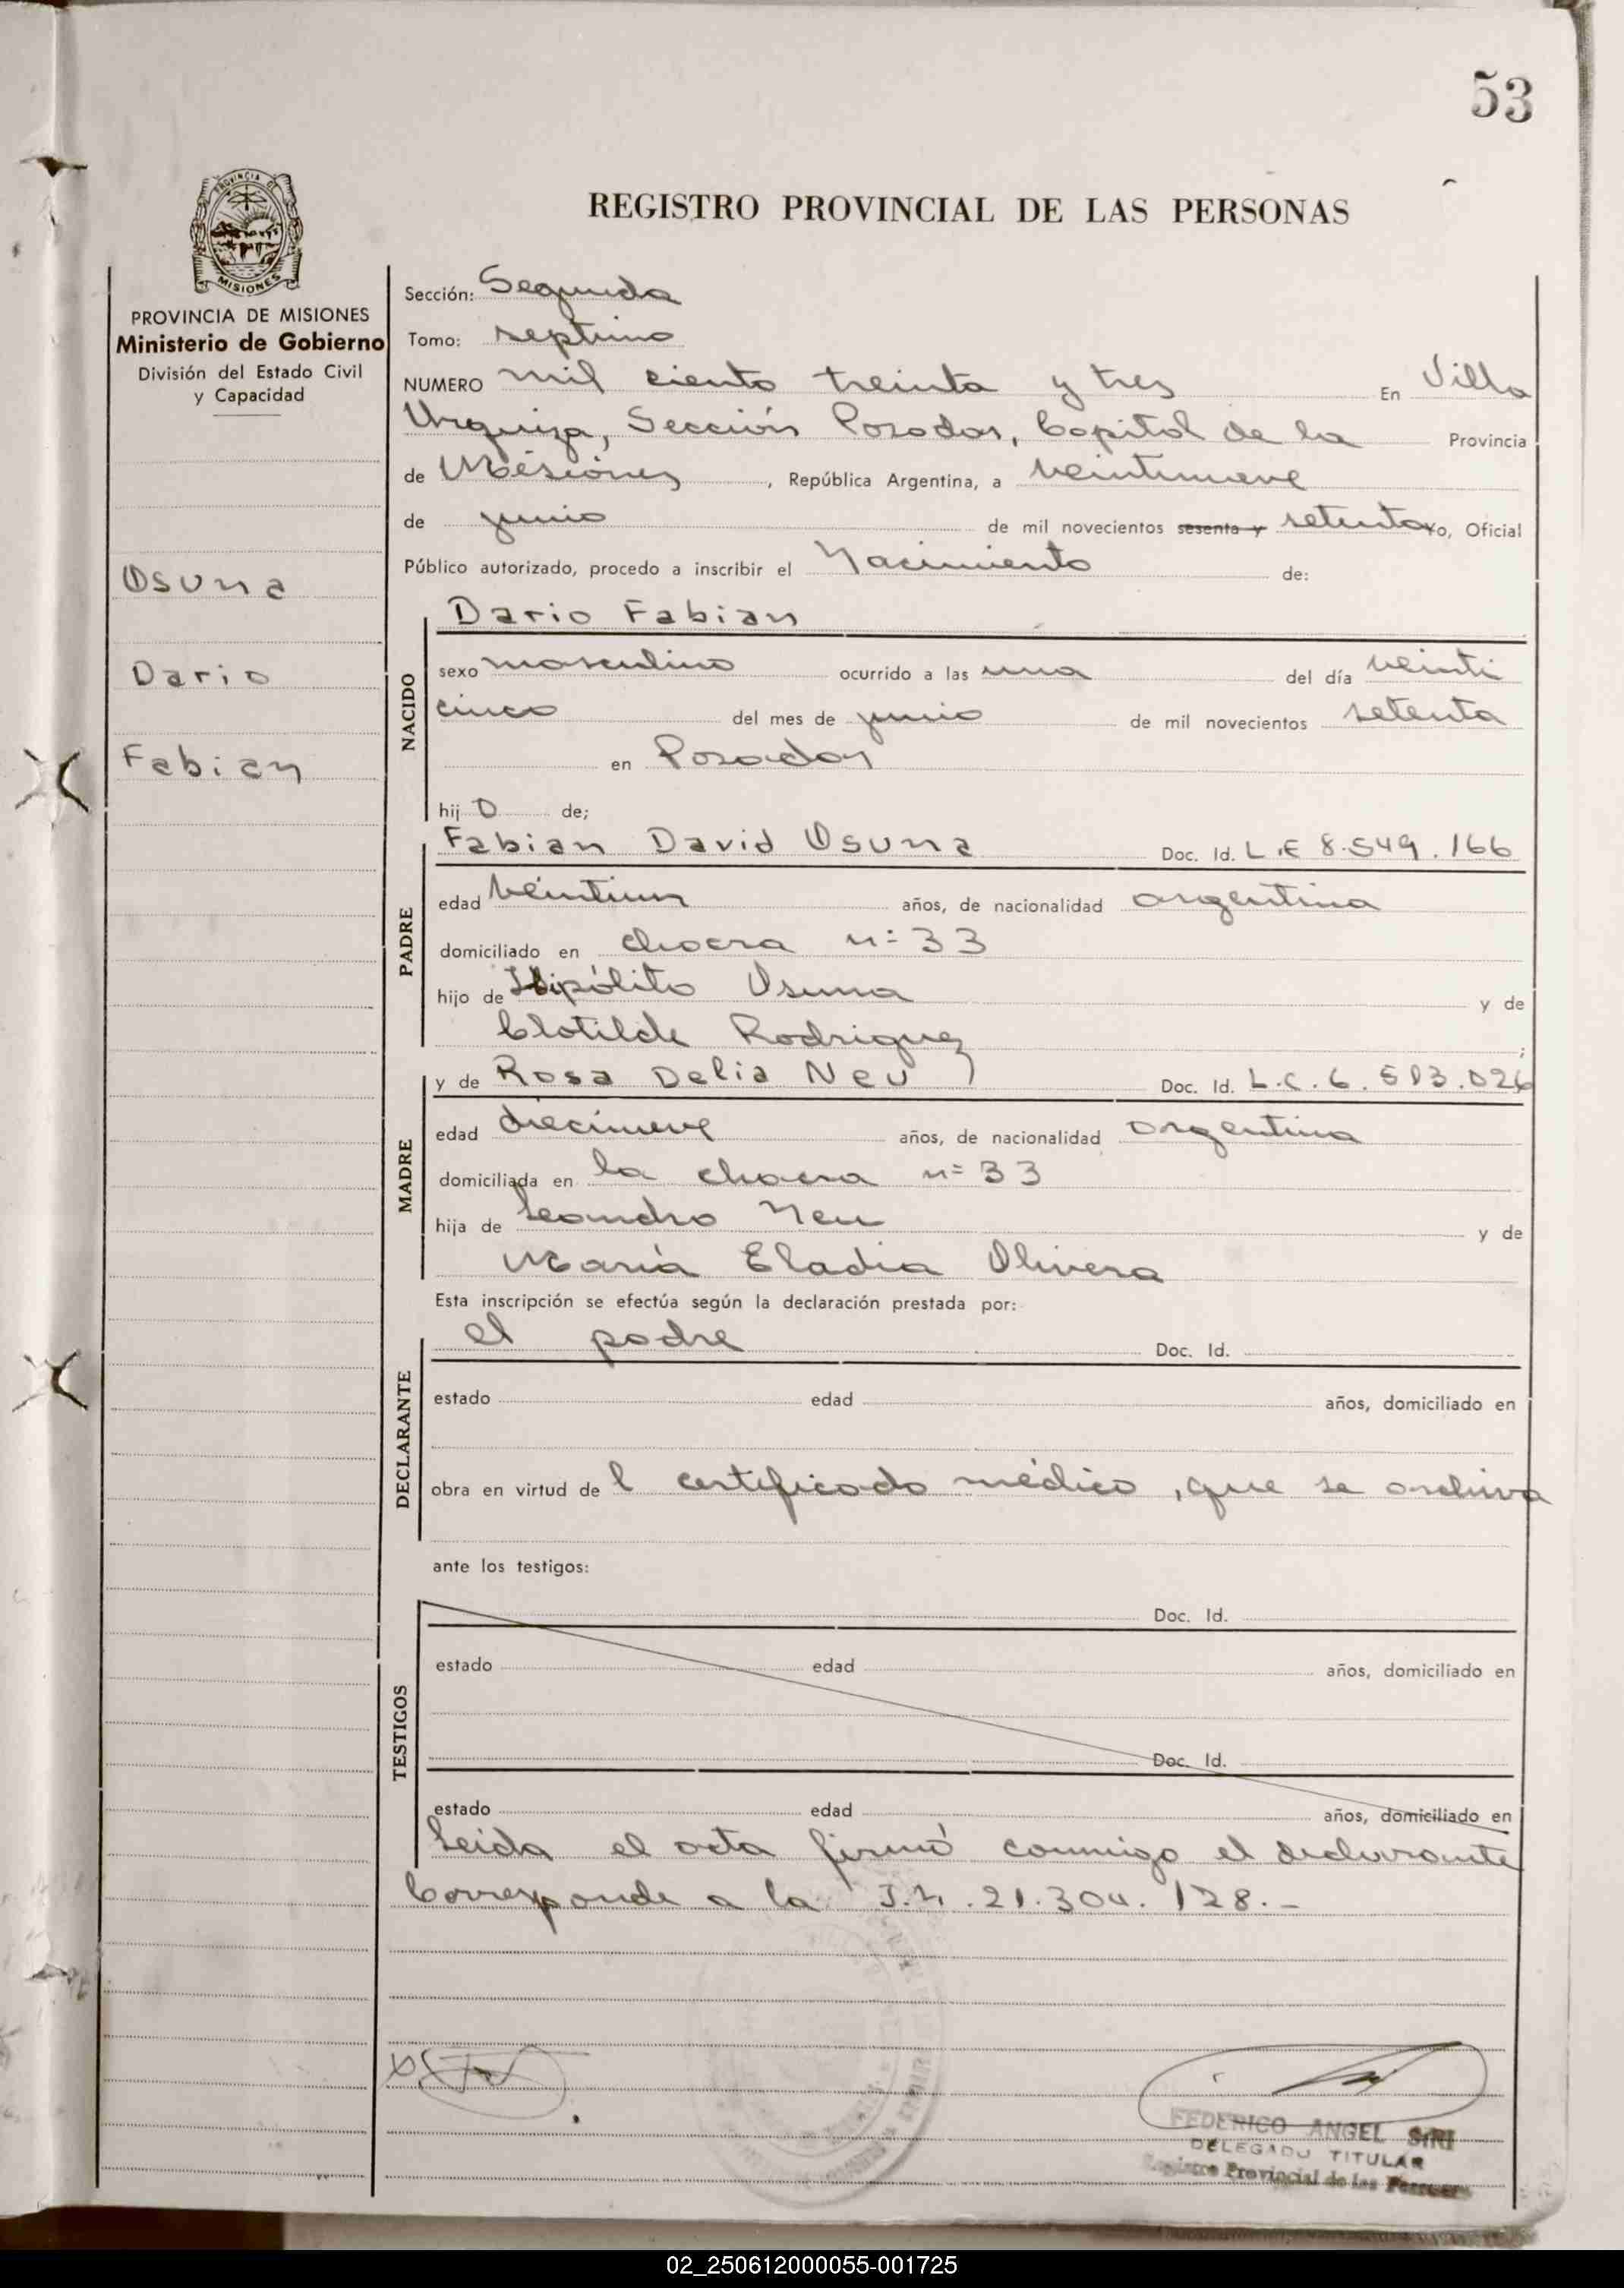 53
REGISTRO PROVINCIAL DE LAS PERSONAS
PROVINCIA DE
MISIONES
PROVINCIA DE MISIONES
Ministerio de Gobierno
División del Estado Civil
y Capacidad
Osuna
Dario
Fabian
Sección: Segunda
Tomo: septimo
NUMERO mil ciento treinta y tres En Villa
Urquiza, Sección Posadas, Capital de la Provincia
de Misiones, República Argentina, a veintinueve
de junio de mil novecientos sesenta y setenta Yo, Oficial
Público autorizado, procedo a inscribir el Nacimiento de:
Dario Fabian
NACIDO
sexo masculino ocurrido a las una del día veinti
cinco del mes de junio de mil novecientos setenta
en Posadas
hijo de;
Fabian David Osuna Doc. Id. L.E 8.549.166
PADRE
edad veintiun años, de nacionalidad argentina
domiciliado en chacra n= 33
hijo de Hipólito Osuna y de
Clotilde Rodriguez;
y de Rosa Delia Neu Doc. Id. L.C. 6.513.026
MADRE
edad diecinueve años, de nacionalidad argentina
domiciliada en la chacra n= 33
hija de Leandro Neu y de
María Eladia Olivera
Esta inscripción se efectúa según la declaración prestada por:
el padre Doc. Id.
DECLARANTE
estado edad años, domiciliado en
obra en virtud del certificado médico, que se archiva
ante los testigos:
Doc. Id.
TESTIGOS
estado edad años, domiciliado en
Doc. Id.
estado edad años, domiciliado en
Leida el acta firmó conmigo el declarante
Corresponde a la I.N. 21.304.128.-
FEDERICO ANGEL SIRI
DELEGADO TITULAR
Registro Provincial de las Personas
02_250612000055-001725